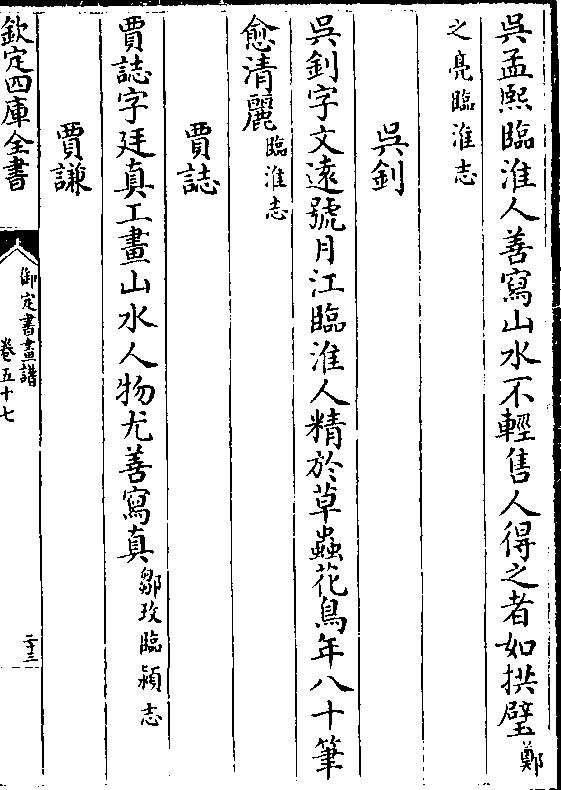 吳孟熙臨淮人善寫山水不輕售人得之者如拱璧鄭
之亮臨淮志
吳釗
吳釗字文遠號月江臨淮人精於草蟲花鳥年八十筆
愈清麗臨淮志
賈誌
賈誌字廷真工畫山水人物尤善寫真鄒玫臨潁志
賈謙
欽定四庫全書
御定書畫譜
卷五十七
二十三